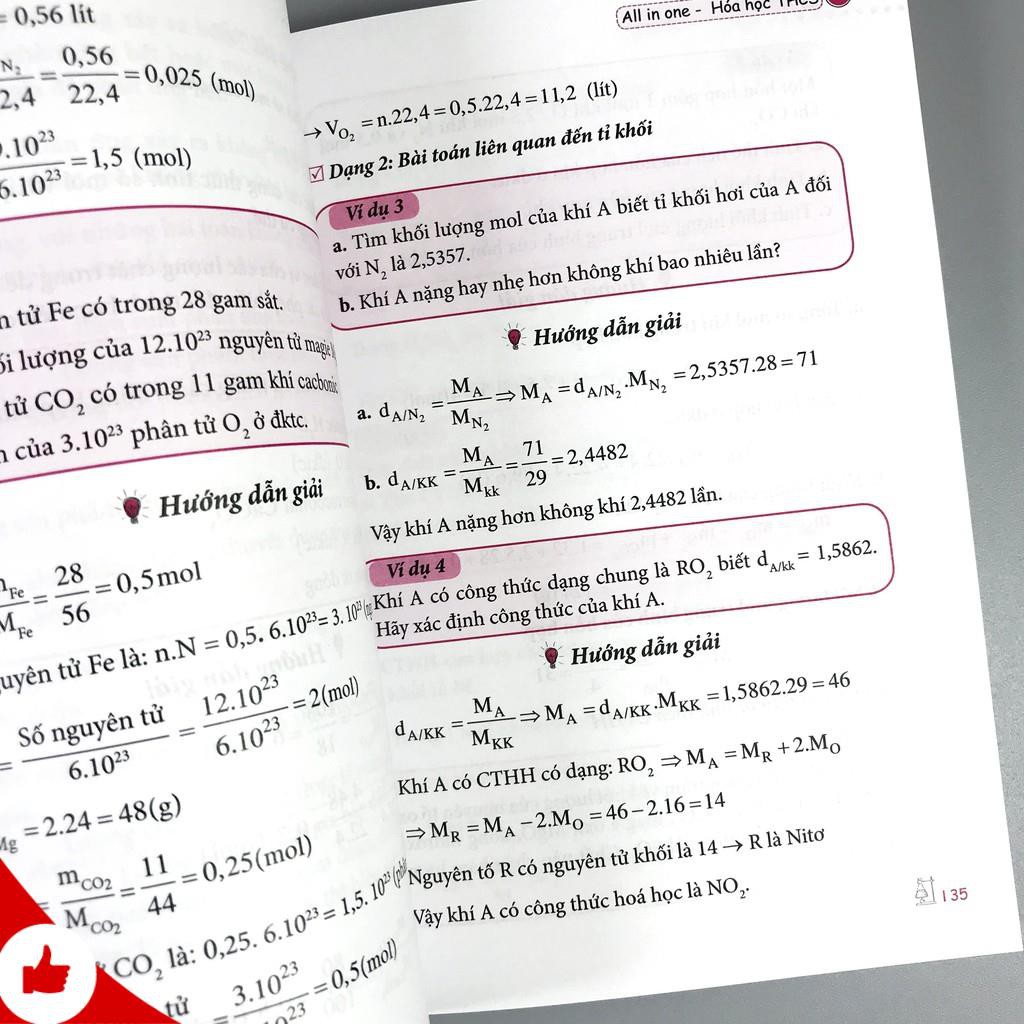 = 0,56 lít
N₂/2,4 = 0,56/22,4 = 0,025 (mol)
.10²³/6.10²³ = 1,5 (mol)
tử Fe có trong 28 gam sắt.
lượng của 12.10²³ nguyên tử magie
tử CO₂ có trong 11 gam khí cacbonic
của 3.10²³ phân tử O₂ ở đktc.
Hướng dẫn giải
m_Fe/M_Fe = 28/56 = 0,5 mol
uyên tử Fe là: n.N = 0,5. 6.10²³ = 3.10²³
= Số nguyên tử/6.10²³ = 12.10²³/6.10²³ = 2(mol)
Mg = 2.24 = 48(g)
= m_CO₂/M_CO₂ = 11/44 = 0,25(mol)
CO₂ là: 0,25. 6.10²³ = 1,5. 10²³
tử = 3.10²³/10²³ = 0,5(mol)
All in one - Hóa học THCS
→ V_O₂ = n.22,4 = 0,5.22,4 = 11,2 (lít)
☑ Dạng 2: Bài toán liên quan đến tỉ khối
Ví dụ 3
a. Tìm khối lượng mol của khí A biết tỉ khối hơi của A đối
với N₂ là 2,5357.
b. Khí A nặng hay nhẹ hơn không khí bao nhiêu lần?
Hướng dẫn giải
a. d_A/N₂ = M_A/M_N₂ ⇒ M_A = d_A/N₂.M_N₂ = 2,5357.28 = 71
b. d_A/KK = M_A/M_kk = 71/29 = 2,4482
Vậy khí A nặng hơn không khí 2,4482 lần.
Ví dụ 4
Khí A có công thức dạng chung là RO₂ biết d_A/kk = 1,5862.
Hãy xác định công thức của khí A.
Hướng dẫn giải
d_A/KK = M_A/M_KK ⇒ M_A = d_A/KK.M_KK = 1,5862.29 = 46
Khí A có CTHH có dạng: RO₂ ⇒ M_A = M_R + 2.M_O
⇒ M_R = M_A − 2.M_O = 46 − 2.16 = 14
Nguyên tố R có nguyên tử khối là 14 → R là Nitơ
Vậy khí A có công thức hoá học là NO₂.
135